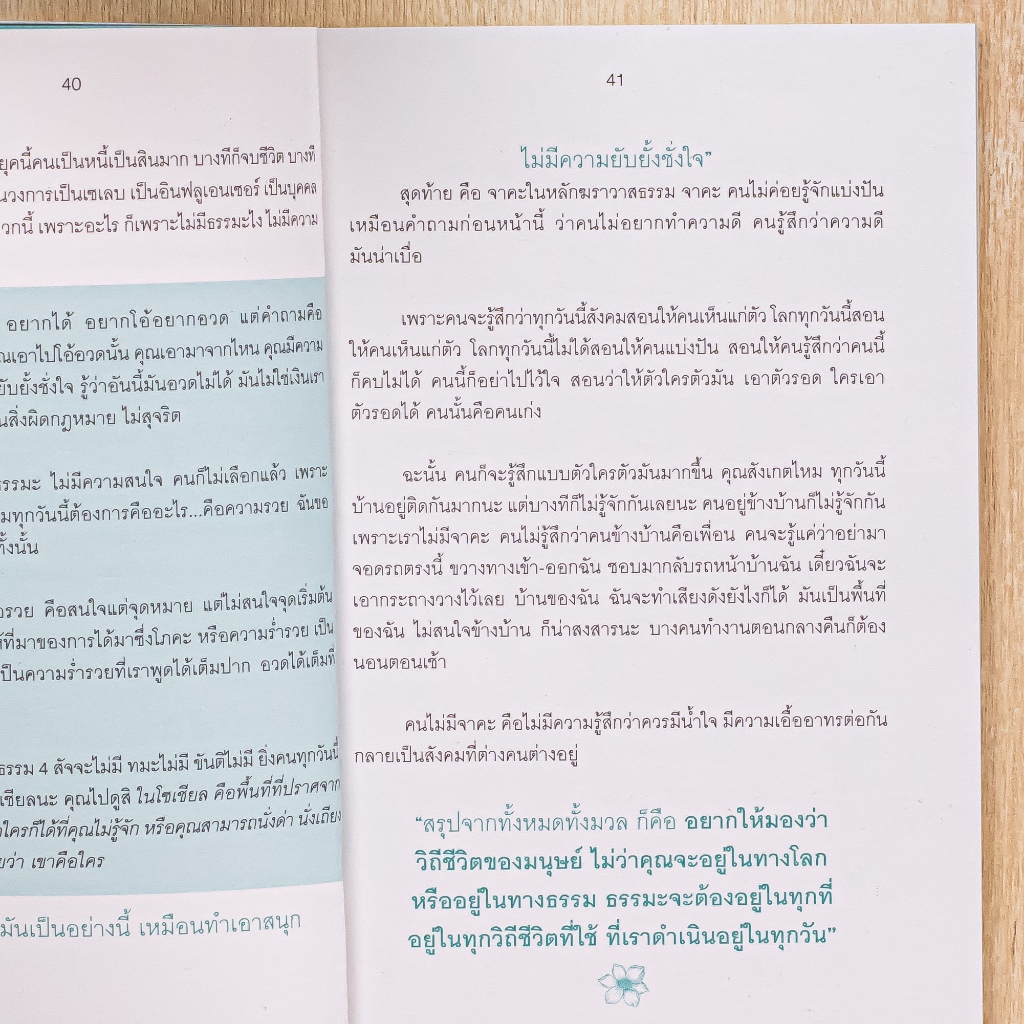 40
ยุคนี้คนเป็นหนี้เป็นสินมาก บางทีก็จบชีวิต บางที
วงการเป็นเซเลบ เป็นอินฟลูเอนเซอร์ เป็นบุคคล
วกนี้ เพราะอะไร ก็เพราะไม่มีธรรมะไง ไม่มีความ
อยากได้ อยากโอ้อยากอวด แต่คำถามคือ
ณเอาไปโอ้อวดนั้น คุณเอามาจากไหน คุณมีความ
ยับยั้งชั่งใจ รู้ว่าอันนี้มันอวดไม่ได้ มันไม่ใช่เงินเรา
นสิ่งผิดกฎหมาย ไม่สุจริต
ธรรมะ ไม่มีความสนใจ คนก็ไม่เลือกแล้ว เพราะ
มทุกวันนี้ต้องการคืออะไร...คือความรวย ฉันขอ
ทั้งนั้น
รวย คือสนใจแต่จุดหมาย แต่ไม่สนใจจุดเริ่มต้น
ที่มาของการได้มาซึ่งโภคะ หรือความร่ำรวย เป็น
ป็นความร่ำรวยที่เราพูดได้เต็มปาก อวดได้เต็มที่
ธรรม 4 สัจจะไม่มี ทมะไม่มี ขันติไม่มี ยิ่งคนทุกวันนี้
เชียลนะ คุณไปดูสิ ในโซเชียล คือพื้นที่ที่ปราศจาก
ใครก็ได้ที่คุณไม่รู้จัก หรือคุณสามารถนั่งด่า นั่งเถียง
ว่า เขาคือใคร
มันเป็นอย่างนี้ เหมือนทำเอาสนุก
41
ไม่มีความยับยั้งชั่งใจ”
สุดท้าย คือ จาคะในหลักฆราวาสธรรม จาคะ คนไม่ค่อยรู้จักแบ่งปัน
เหมือนคำถามก่อนหน้านี้ ว่าคนไม่อยากทำความดี คนรู้สึกว่าความดี
มันน่าเบื่อ
เพราะคนจะรู้สึกว่าทุกวันนี้สังคมสอนให้คนเห็นแก่ตัว โลกทุกวันนี้สอน
ให้คนเห็นแก่ตัว โลกทุกวันนี้ไม่ได้สอนให้คนแบ่งปัน สอนให้คนรู้สึกว่าคนนี้
ก็คบไม่ได้ คนนี้ก็อย่าไปไว้ใจ สอนว่าให้ตัวใครตัวมัน เอาตัวรอด ใครเอา
ตัวรอดได้ คนนั้นคือคนเก่ง
ฉะนั้น คนก็จะรู้สึกแบบตัวใครตัวมันมากขึ้น คุณสังเกตไหม ทุกวันนี้
บ้านอยู่ติดกันมากนะ แต่บางทีก็ไม่รู้จักกันเลยนะ คนอยู่ข้างบ้านก็ไม่รู้จักกัน
เพราะเราไม่มีจาคะ คนไม่รู้สึกว่าคนข้างบ้านคือเพื่อน คนจะรู้แค่ว่าอย่ามา
จอดรถตรงนี้ ขวางทางเข้า-ออกฉัน ชอบมากลับรถหน้าบ้านฉัน เดี๋ยวฉันจะ
เอากระถางวางไว้เลย บ้านของฉัน ฉันจะทำเสียงดังยังไงก็ได้ มันเป็นพื้นที่
ของฉัน ไม่สนใจข้างบ้าน ก็น่าสงสารนะ บางคนทำงานตอนกลางคืนก็ต้อง
นอนตอนเช้า
คนไม่มีจาคะ คือไม่มีความรู้สึกว่าควรมีน้ำใจ มีความเอื้ออาทรต่อกัน
กลายเป็นสังคมที่ต่างคนต่างอยู่
“สรุปจากทั้งหมดทั้งมวล ก็คือ อยากให้มองว่า
วิถีชีวิตของมนุษย์ ไม่ว่าคุณจะอยู่ในทางโลก
หรืออยู่ในทางธรรม ธรรมะจะต้องอยู่ในทุกที่
อยู่ในทุกวิถีชีวิตที่ใช้ ที่เราดำเนินอยู่ในทุกวัน”